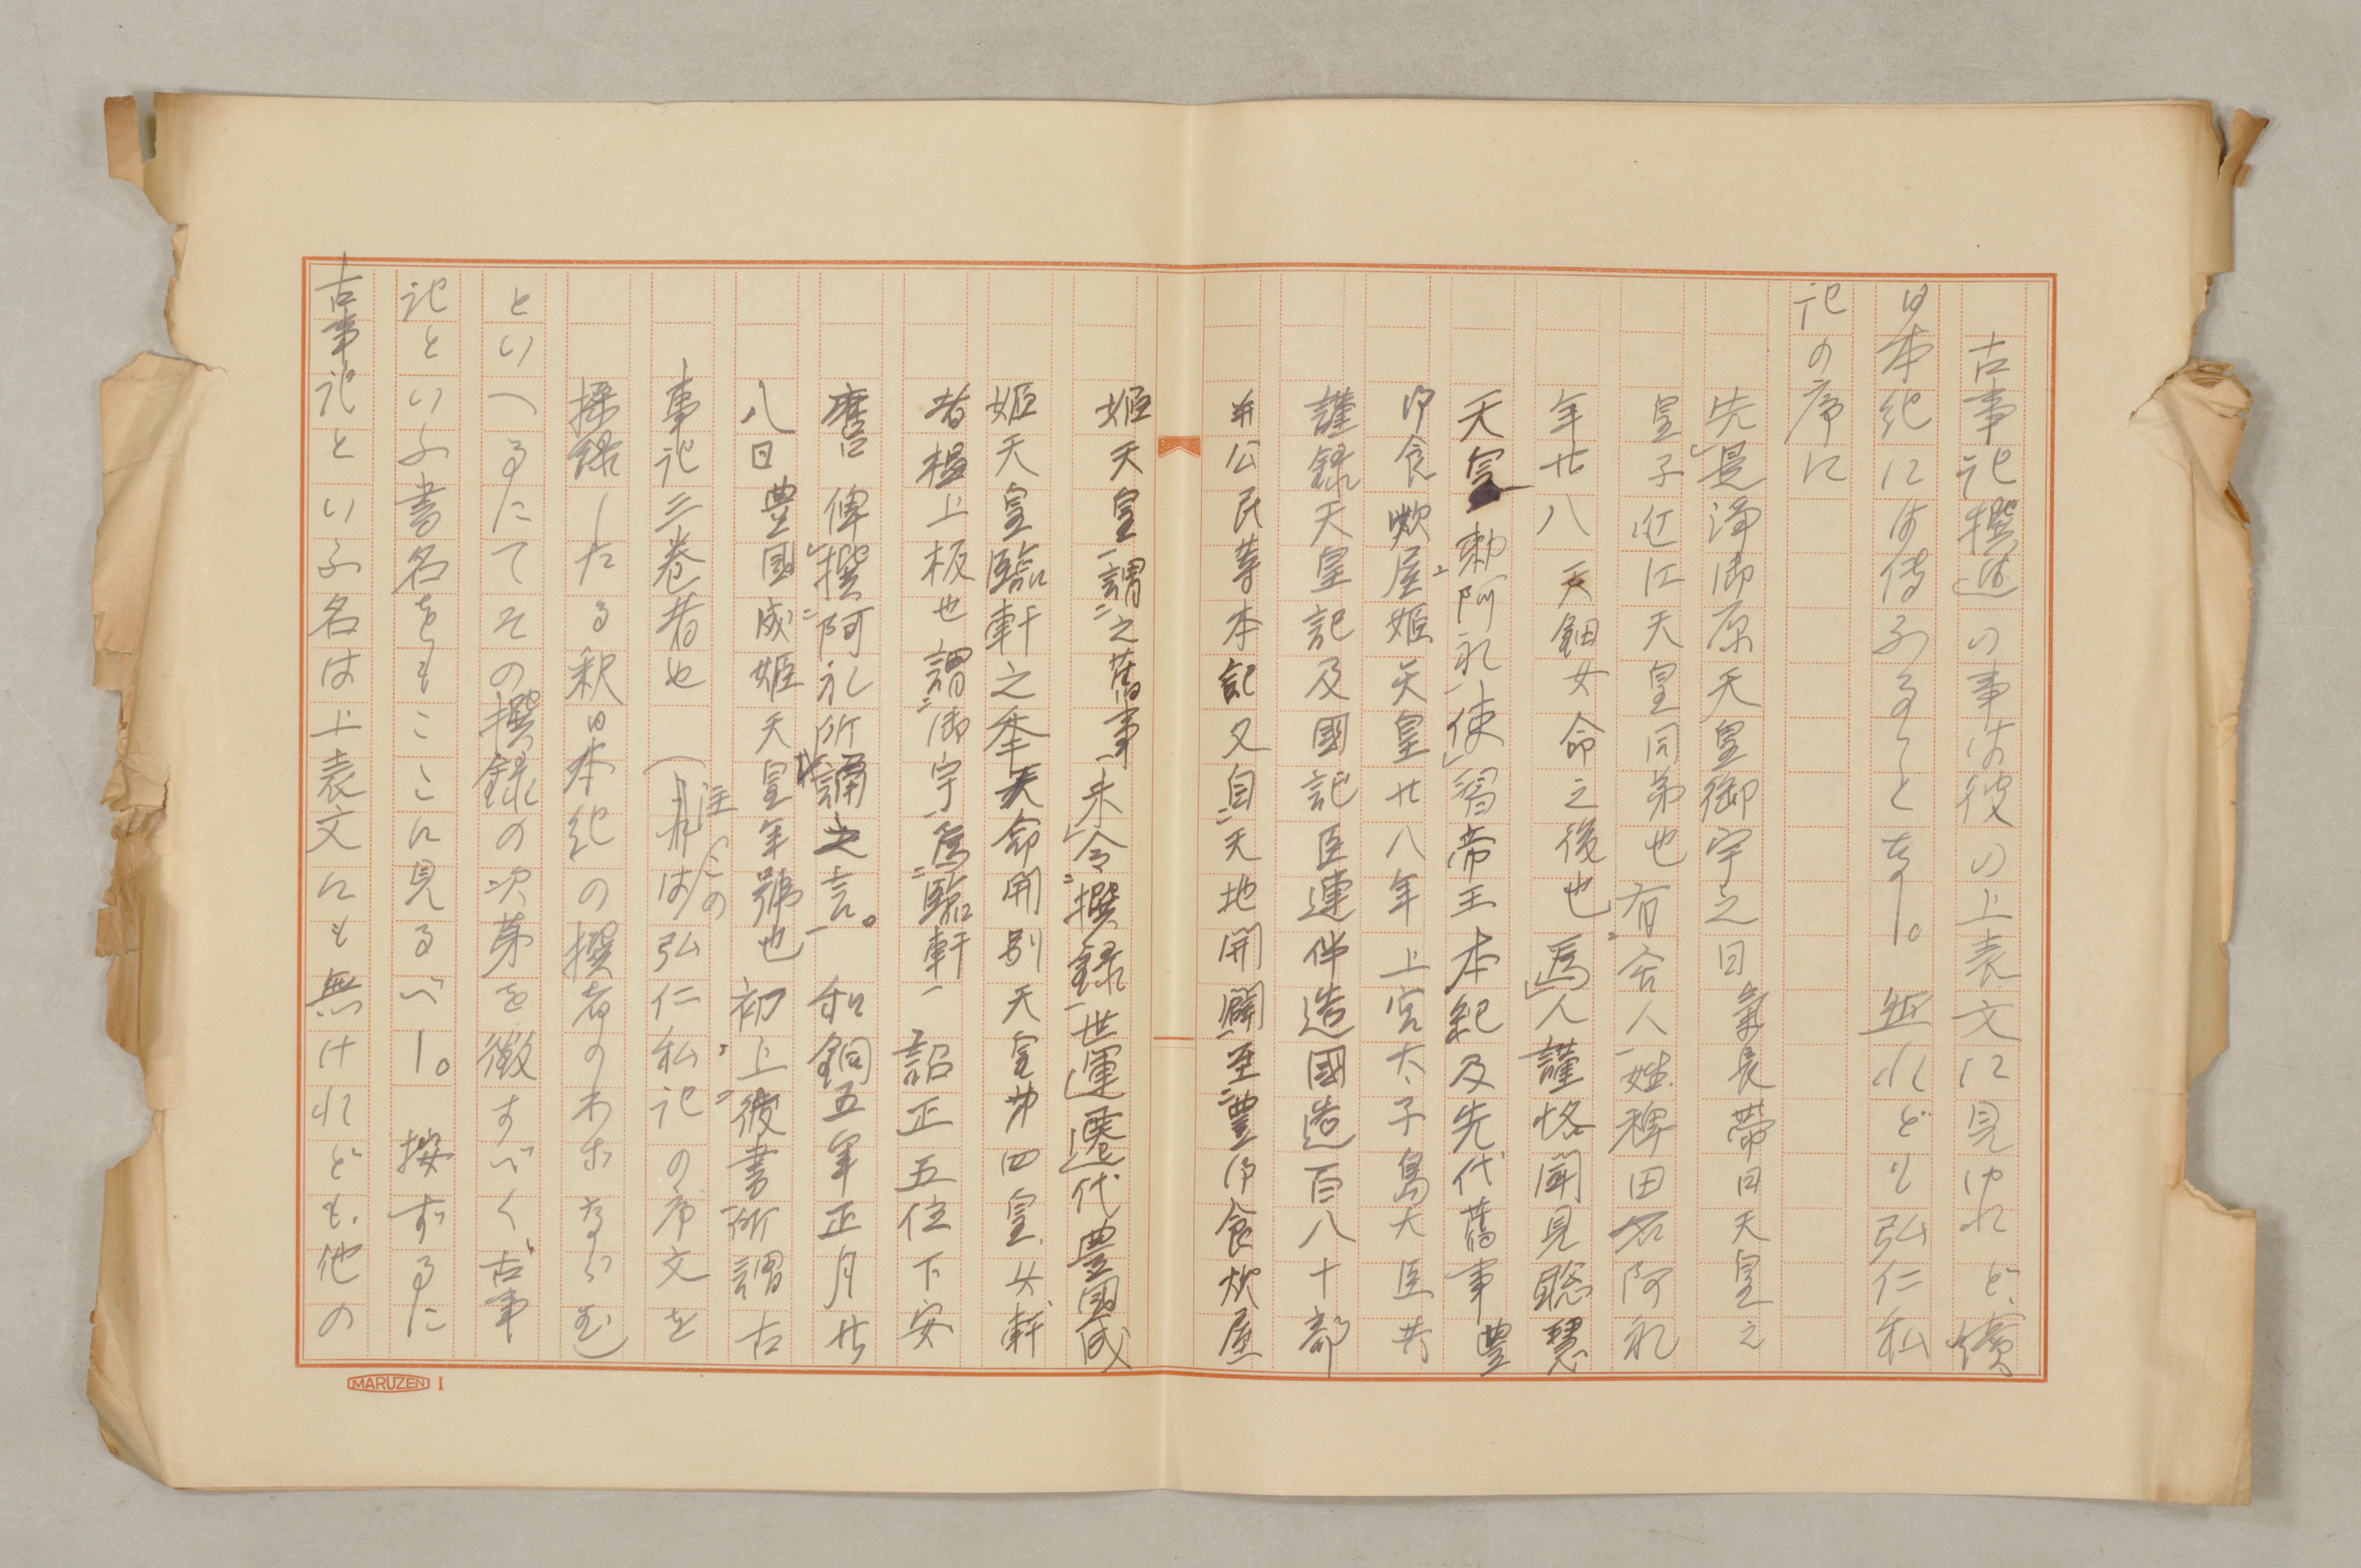 古事記撰述の事は彼の上表文に見ゆれど、續
日本紀には傳ふることなし。然れども弘仁私
記の序に
先是淨御原天皇御宇之日氣長帶日天皇之
皇子近江天皇同弟也有舍人姓稗田名阿礼
年廿八天鈿女命之後也爲人謹恪聞見聡慧
天皇勅阿礼使習帝王本紀及先代舊事豊
御食炊屋姫天皇廿八年上宮太子嶋大臣共
謹録天皇記及國記臣連伴造國造百八十部
并公民等本記又自天地開闢至豊御食炊屋
姫天皇謂之舊事未令撰録世運遷代豊國成
姫天皇臨軒之季天命開別天皇第四皇女軒
者楹上板也謂御宇爲臨軒詔正五位下安
麿俾撰阿礼所誦之言。和銅五年正月廿
八日豊國成姫天皇年號也初上彼書所謂古
事記三卷者也(註 この は弘仁私記の序文を
採録したる釈日本紀の撰者のわざならむ
といへるにてその撰録の次第を徴すべく、古事
記といふ書名をもここに見るべし。按ずるに
古事記といふ名は上表文にも無けれども、他の
MARUZEN I